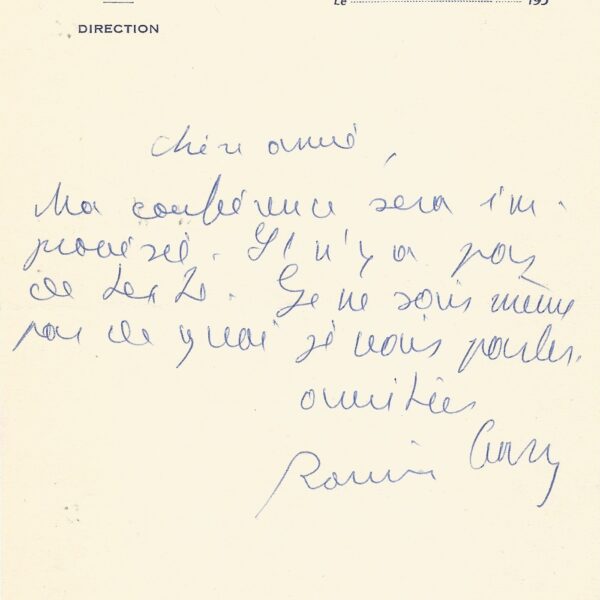 DIRECTION
Le 195
Chère amie,
Ma conférence sera im-
provisée. Il n'y a pas
de texte. Je ne sais même
pas de quoi je vais parler.
amitiés
Romain Gary